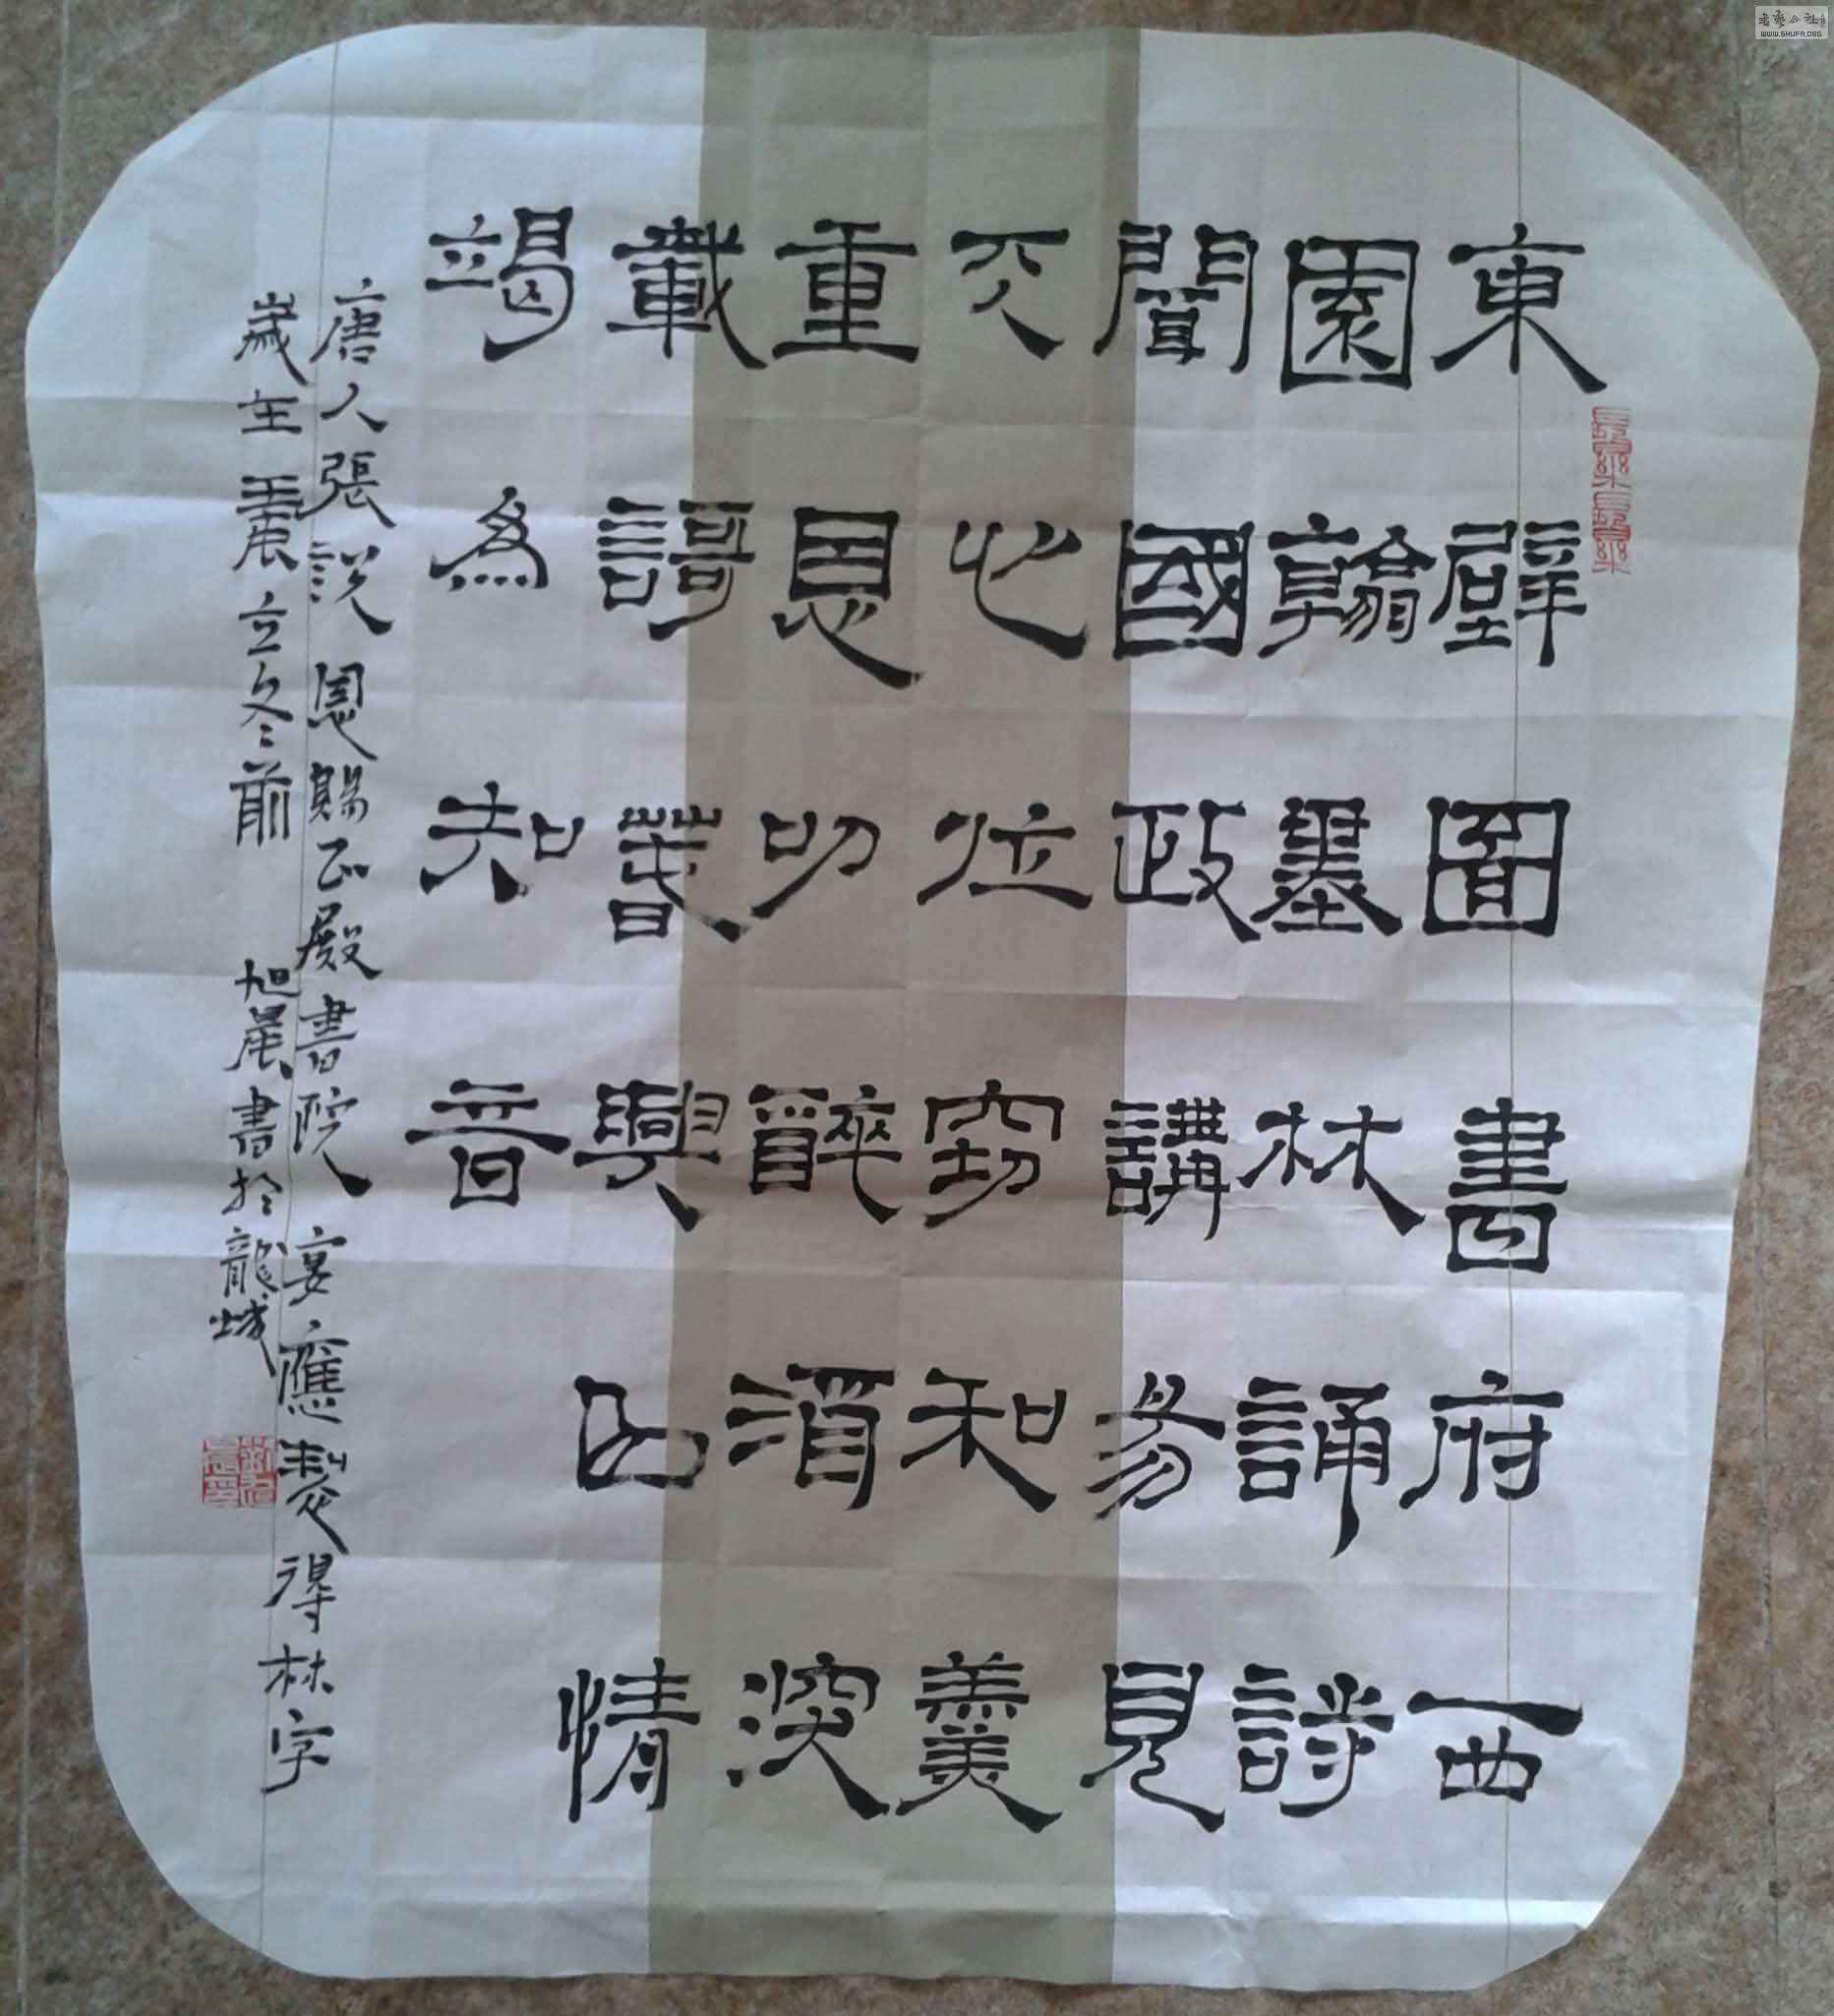 東壁圖書府西
園翰墨林誦詩
聞國政講易見
天心位竊和羹
重恩叨醉酒深
載謌春興曲情
竭為知音
唐人張說恩賜正殿書院宴應製得林字
歲在壬辰立冬前 旭晨書於龍城
书艺公社
WWW.SHUFA.ORG